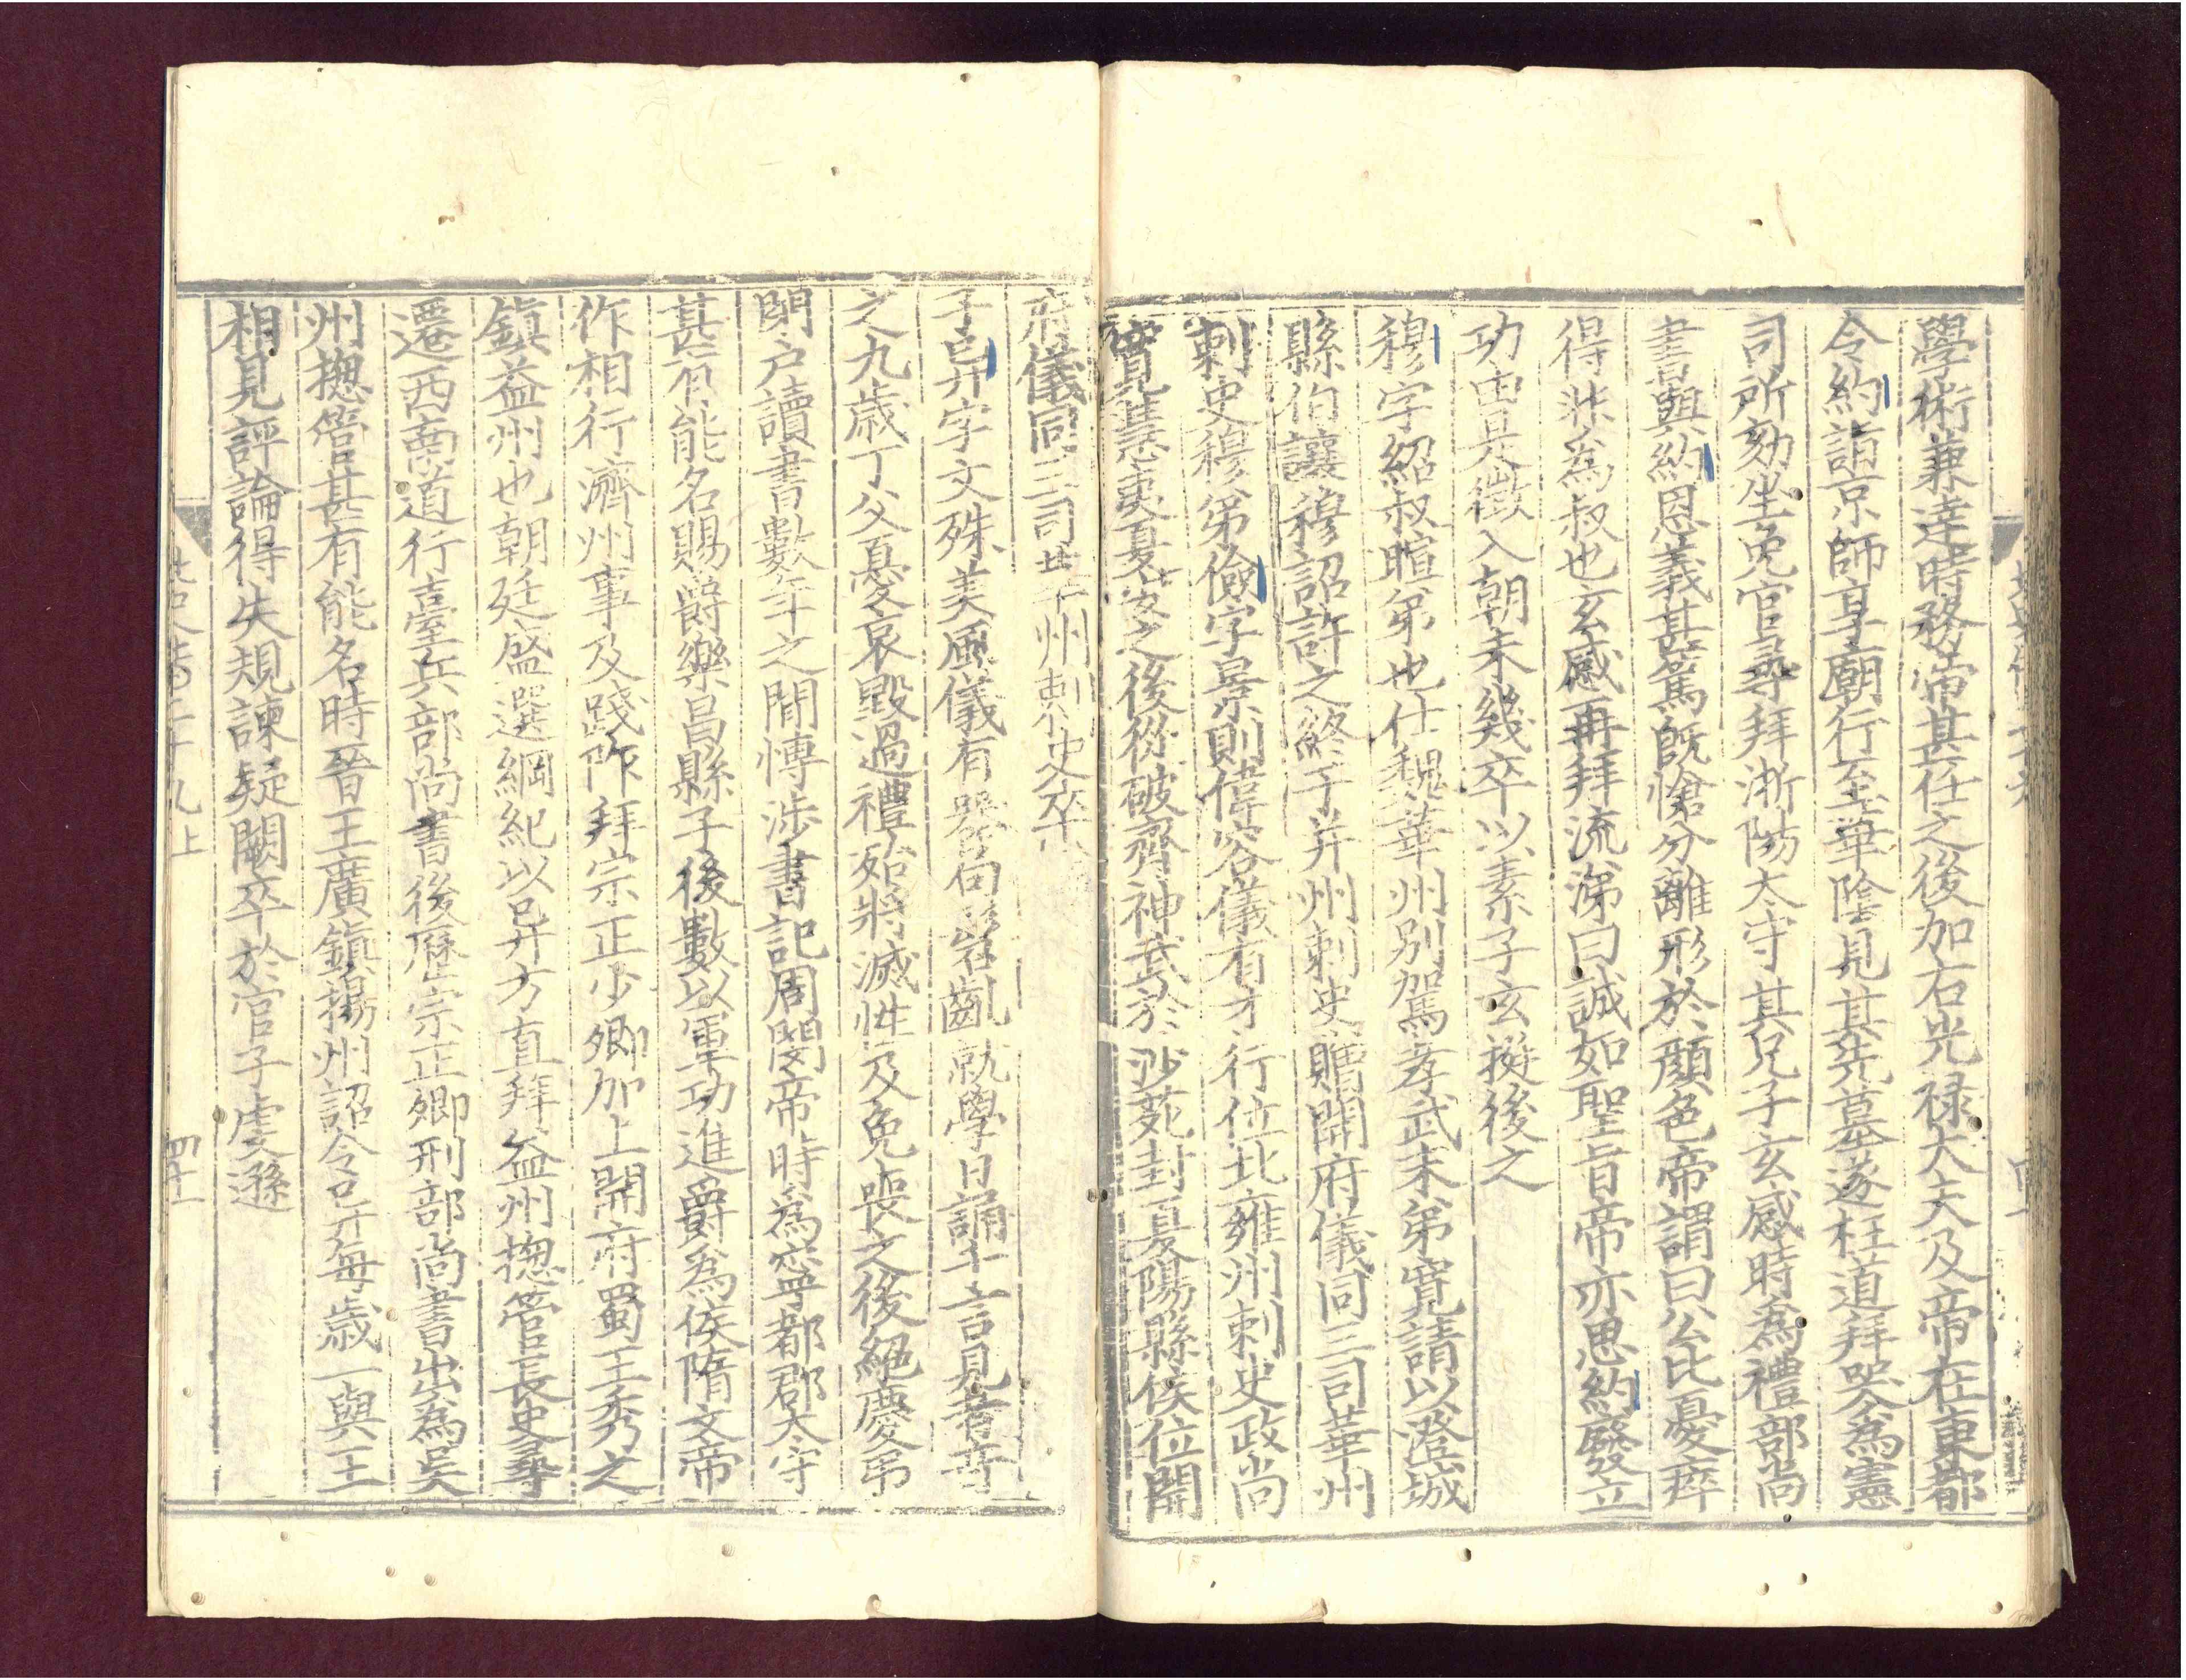 學術兼達時務帝甚任之後加右光禄大夫及帝在東都
令約詣京師享廟行至華陰見其先墓遂枉道拜哭爲憲
司所劾坐免官尋拜淅陽太守其兄子玄感時爲禮部尚
書與約恩義甚篤既愴分離形於顔色帝謂曰公比憂瘁
得非爲叔也玄感再拜流涕曰誠如聖旨帝亦思約廢立
功由是徵入朝未幾卒以素子玄挺後之
穆字紹叔暄弟也仕魏華州別駕孝武末弟寬請以澄城
縣伯讓穆詔許之終于并州刺史贈開府儀同三司華州
刺史穆弟儉字景則偉容儀有才行位北雍州刺史政尚
寬惠夷夏安之後從破齊神武於沙苑封夏陽縣侯位開
府儀同三司 州刺史卒
子昇字文殊美風儀有器局髫齓就學日誦千言見者奇
之九歲丁父憂哀毀過禮殆將滅性及免喪之後絕慶弔
閉户讀書數年之間博涉書記周閔帝時爲寧都郡太守
甚有能名賜爵樂昌縣子後數以軍功進爵爲侯隋文帝
作相行濟州事及踐阼拜宗正少卿加上開府蜀王秀之
鎮益州也朝廷盛選綱紀以异方直拜益州揔管長史尋
遷西南道行臺兵部尚書後歷宗正卿刑部尚書出爲吳
州揔管甚有能名時晉王廣鎮揚州詔令异每歲一與王
相見評論得失規諫疑闕卒於官子虔遜
四十一